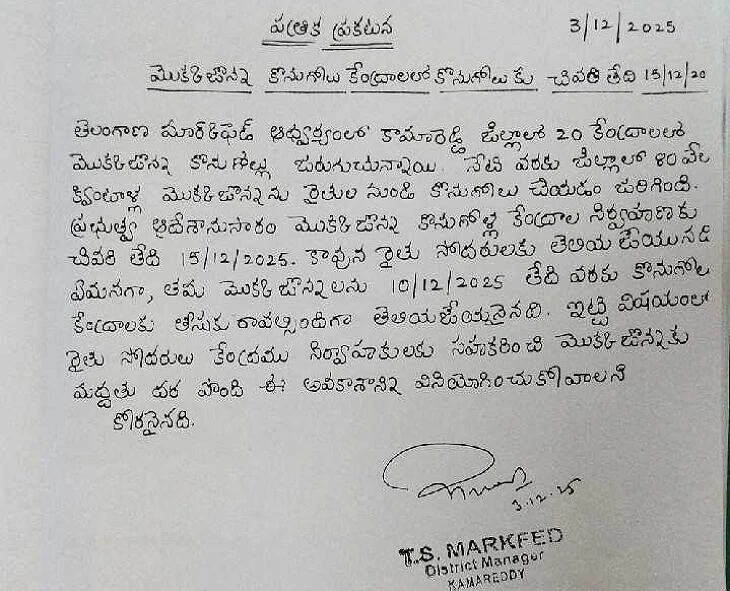 పత్రిక ప్రకటన 3/12/2025
మొక్కజొన్న కొనుగోలు కేంద్రాలలో కొనుగోలుకు చివరి తేది 15/12/20
తెలంగాణ మార్క్‌ఫెడ్ ఆధ్వర్యంలో కామారెడ్డి జిల్లాలో 20 కేంద్రాలలో
మొక్కజొన్న కొనుగోళ్లు జరుగుచున్నాయి. నేటి వరకు జిల్లాలో 80 వేల
క్వింటాళ్ల మొక్కజొన్నను రైతుల నుండి కొనుగోలు చేయడం జరిగింది.
ప్రభుత్వ ఆదేశానుసారం మొక్కజొన్న కొనుగోళ్ల కేంద్రాల నిర్వహణకు
చివరి తేది 15/12/2025. కావున రైతు సోదరులకు తెలియజేయునది
ఏమనగా, తమ మొక్కజొన్నలను 10/12/2025 తేది వరకు కొనుగోలు
కేంద్రాలకు తీసుకు రావల్సిందిగా తెలియజేయనైనది. ఇట్టి విషయంలో
రైతు సోదరులు కేంద్రము నిర్వాహకులకు సహకరించి మొక్కజొన్నకు
మద్దతు ధర పొంది ఈ అవకాశాన్ని వినియోగించుకోవాలని
కోరనైనది.
3.12.25
T.S. MARKFED
District Manager
KAMAREDDY